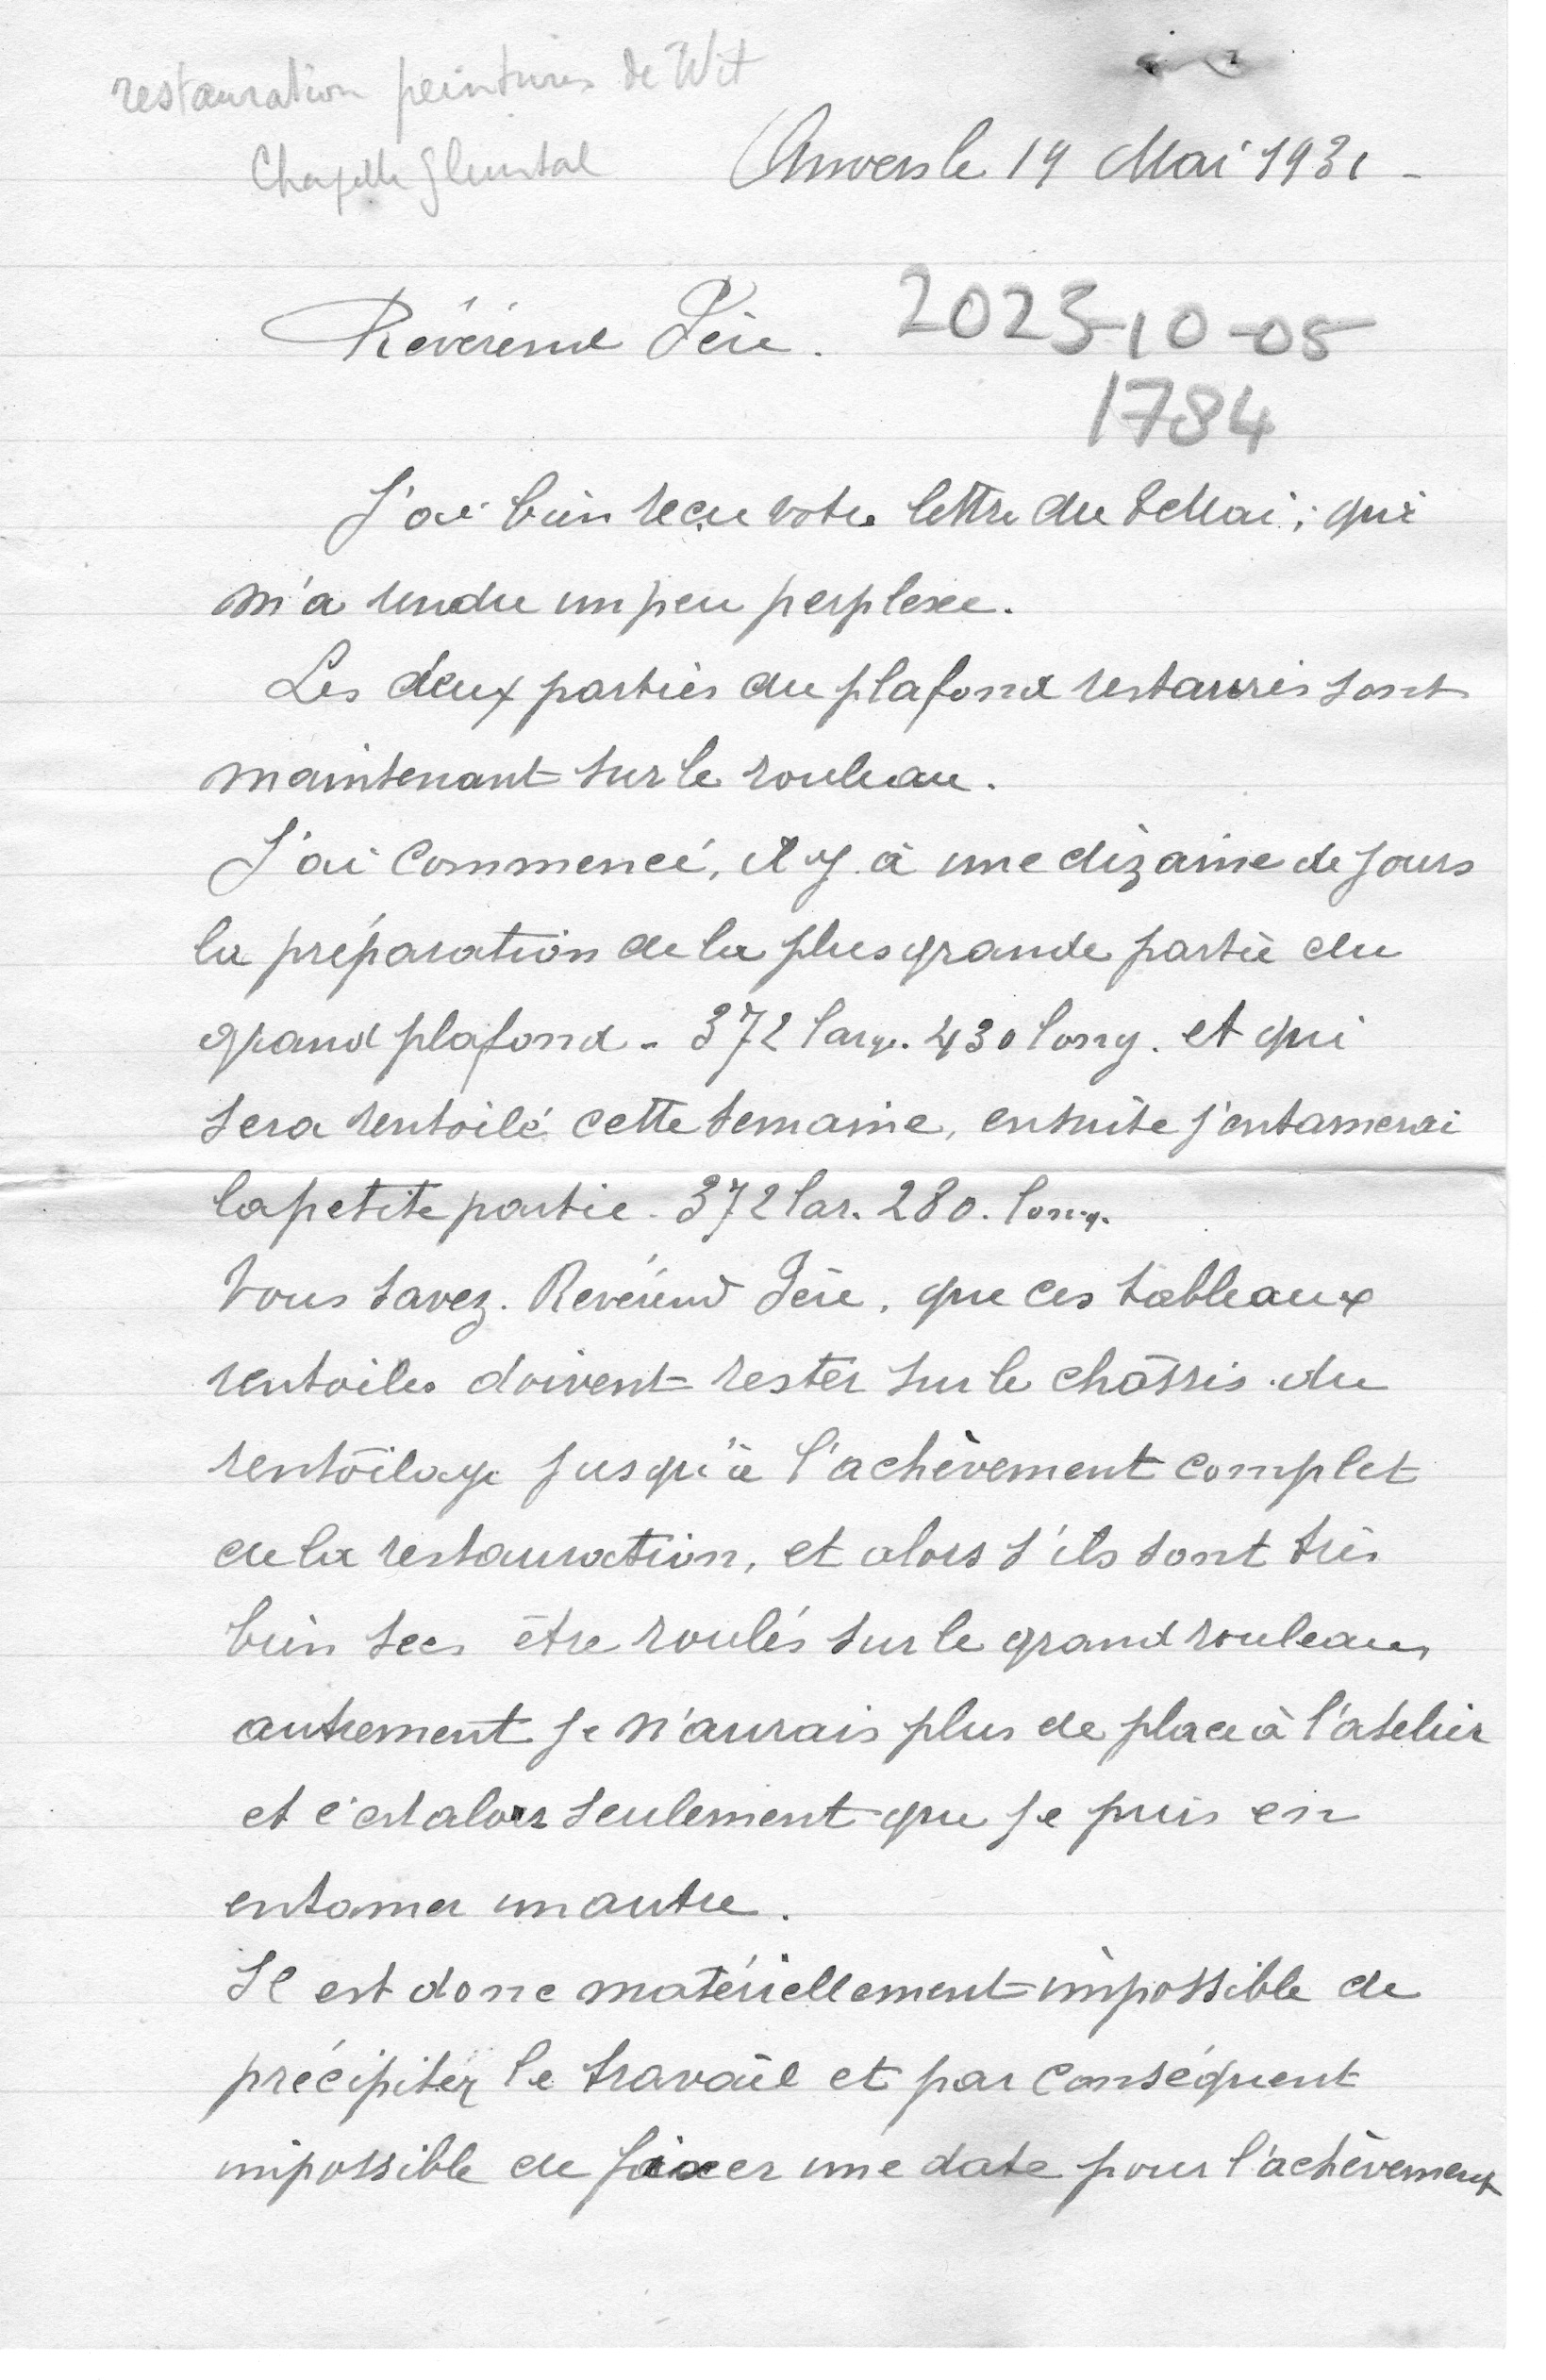 restauration peintures de Wit
Chapelle
Anvers le 19 Mai 1931 -
Révérend Père.
2023-10-05
1784
J'ai bien reçu votre lettre du 8 Mai, qui
m'a rendu un peu perplexe.
Les deux parties du plafond restaurés sont
maintenant sur le rouleau.
J'ai commencé, il y à une dizaine de jours
la préparation de la plus grande partie du
grand plafond - 372 larg. 430 long. et qui
sera rentoilé cette semaine, ensuite j'entamerai
la petite partie - 372 lar. 280. long.
Vous savez. Revérend Père, que ces tableaux
rentoilés doivent rester sur le châssis du
rentoilage jusqu'à l'achèvement complet
de la restauration, et alors s'ils sont très
bien secs être roulés sur le grand rouleau
autrement je n'aurais plus de place à l'atelier
et c'est alors seulement que je puis en
entamer un autre.
Il est donc matériellement impossible de
précipiter le travail et par conséquent
impossible de fixer une date pour l'achèvement